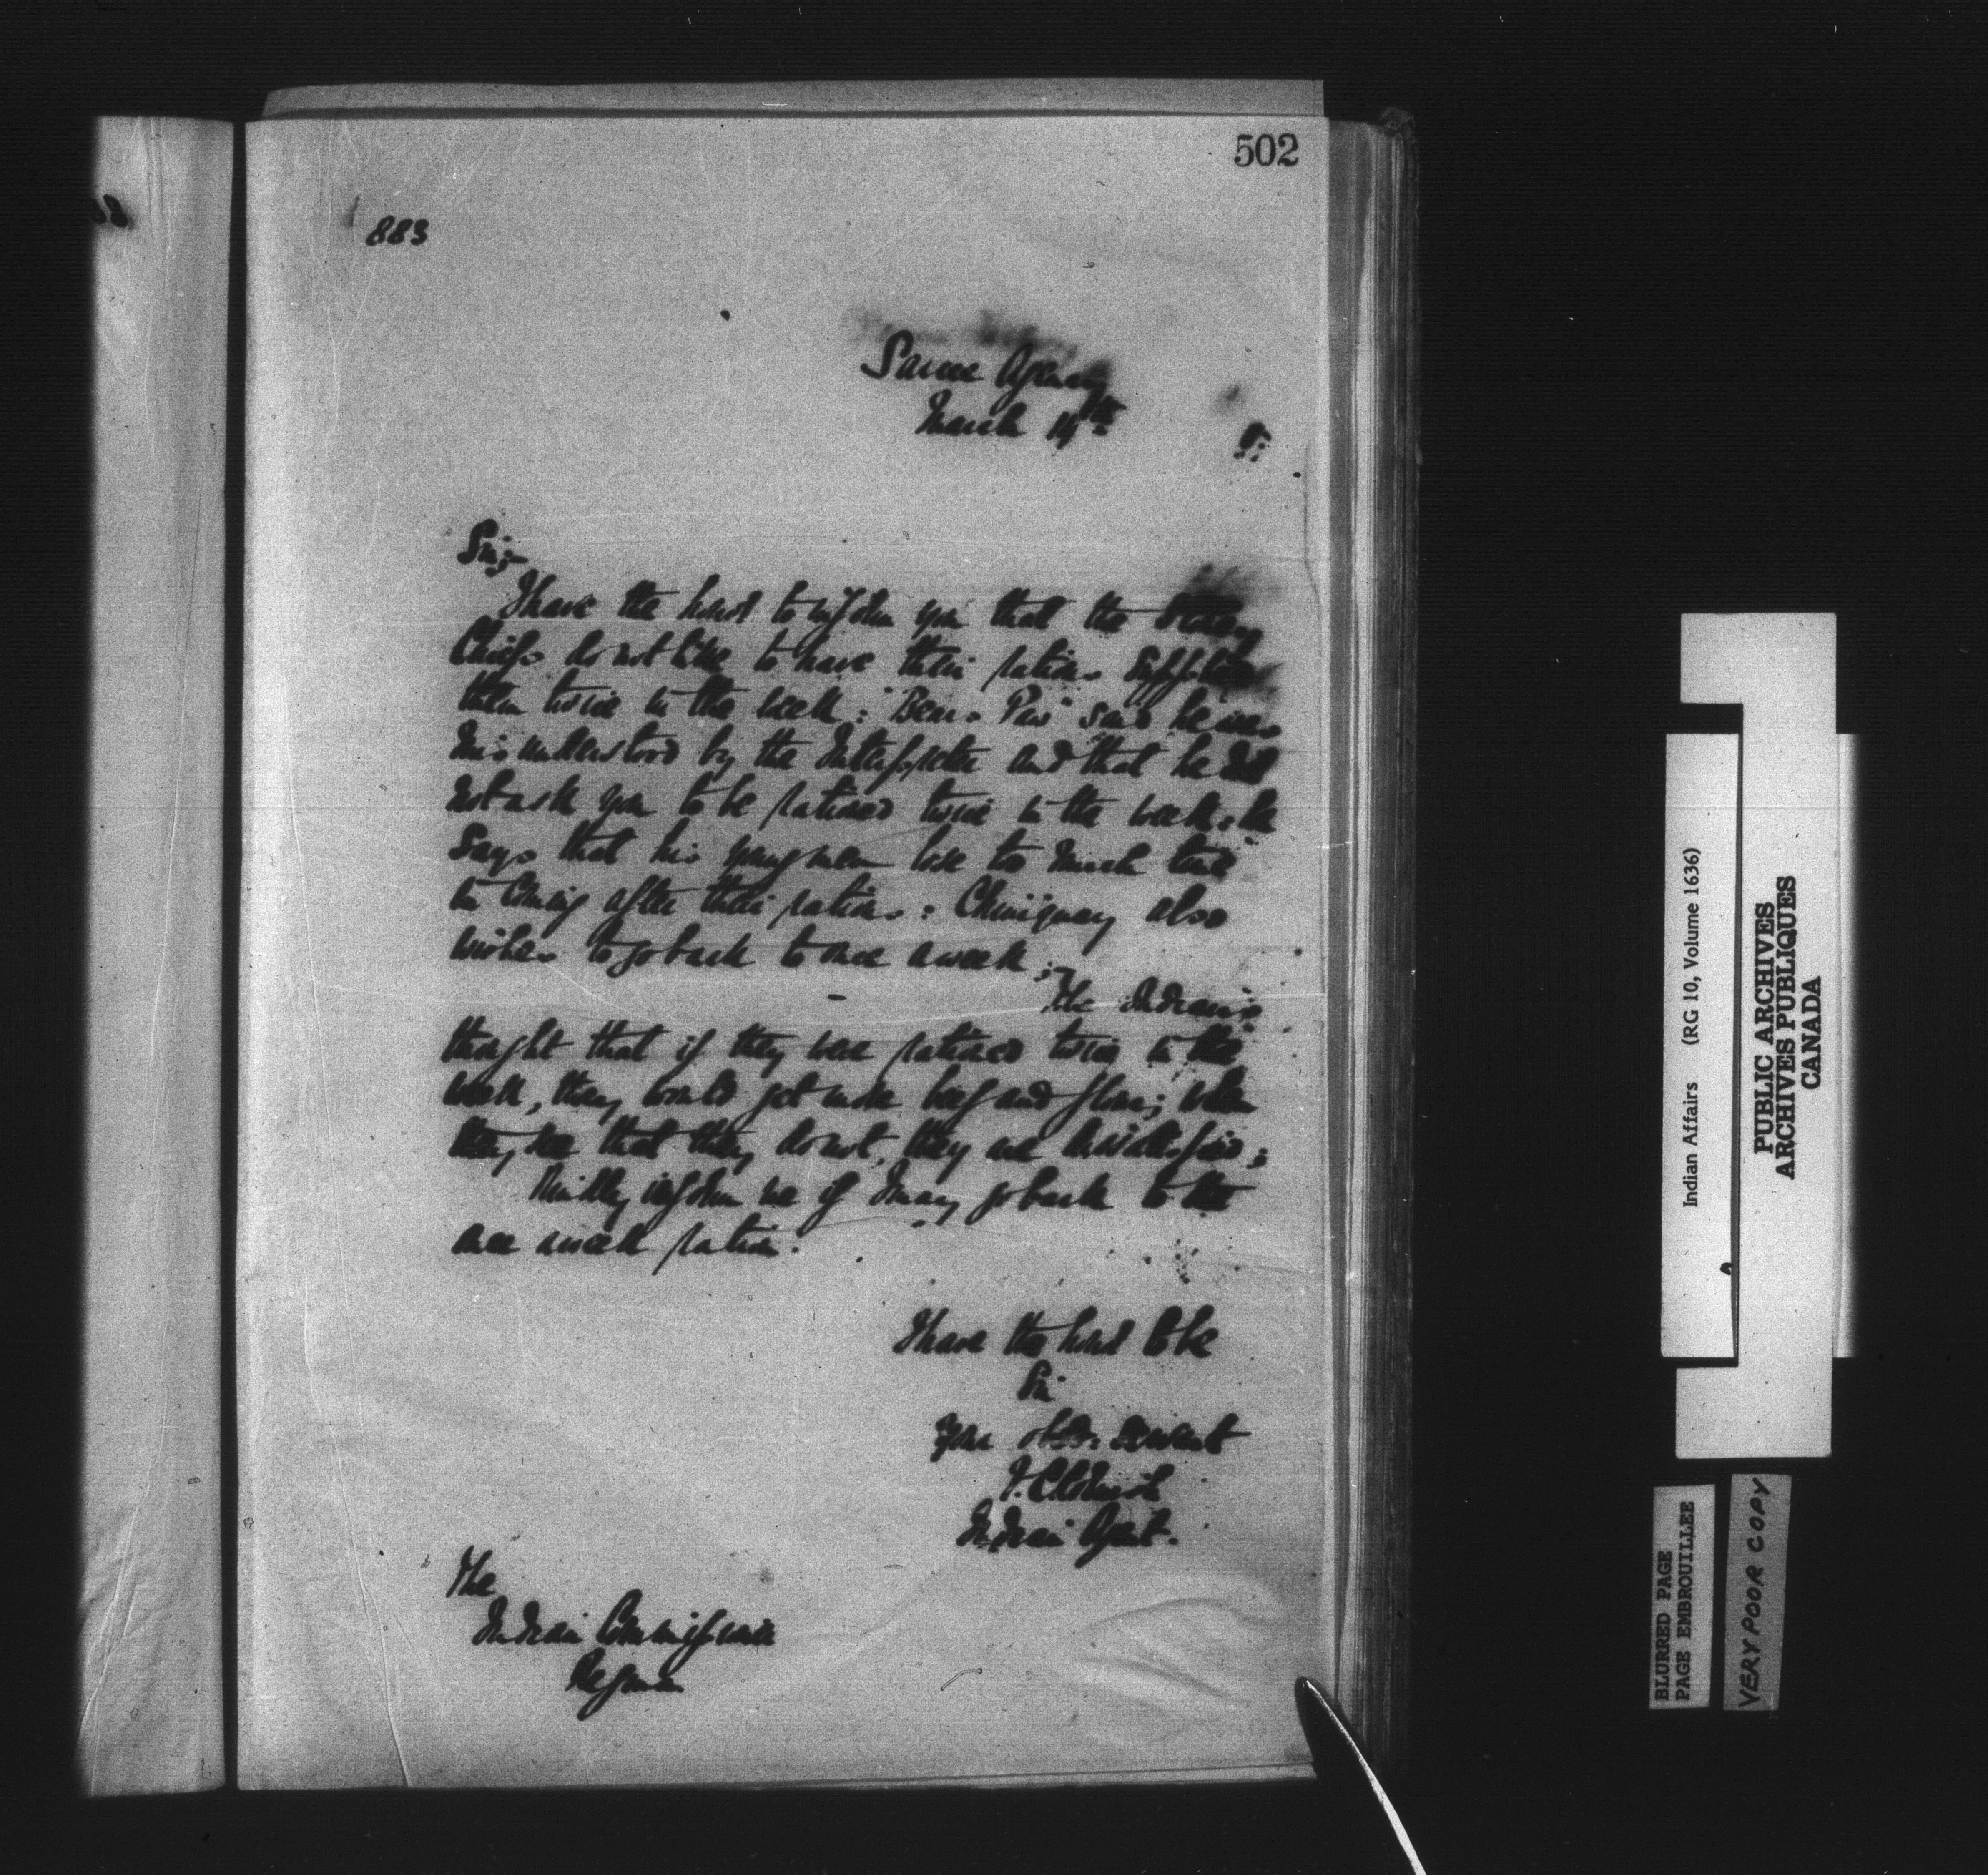 502
883
Sarcee Agency
March 14th
Sir;-
I have the honor to inform you that the Stoney
Chiefs do not like to have their rations supplied
them twice in the week: "Bear's Paw" said he was
misunderstood by the Interpreter and that he did
not ask you to be rationed twice in the week: he
says that his young men lose too much time
in coming after their rations: Chiniquay also
wishes to go back to once a week;-
The Indians
thought that if they were rationed twice in the
week, they would get more beef and flour; when
they see that they do not, they are dissatisfied;
Kindly inform me if I may go back to the
once a week ration.
I have the honor to be
Sir
Your obdt. servant
Indian Agent.
The
Indian Commissioner
Regina
Indian Affairs (RG 10, Volume 1636)
PUBLIC ARCHIVES
ARCHIVES PUBLIQUES
CANADA
BLURRED PAGE
PAGE EMBROUILLEE
VERY POOR COPY